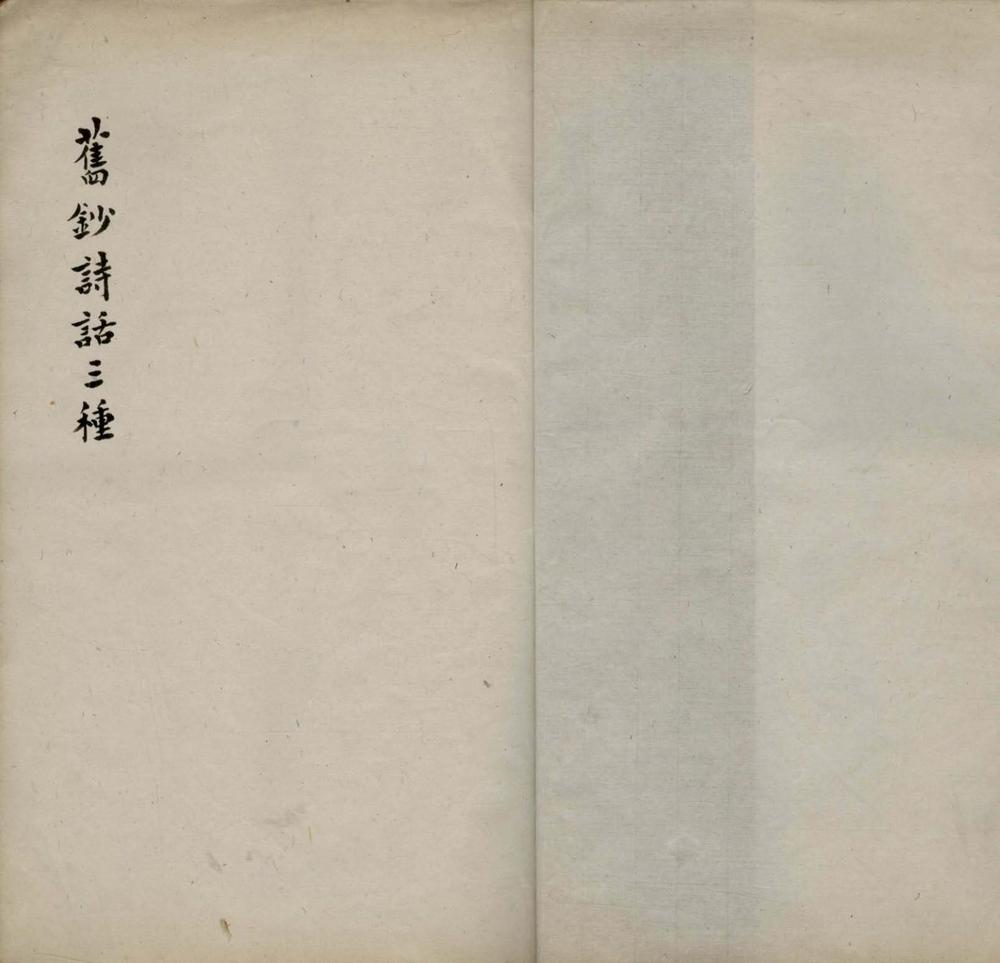 舊鈔詩話三種